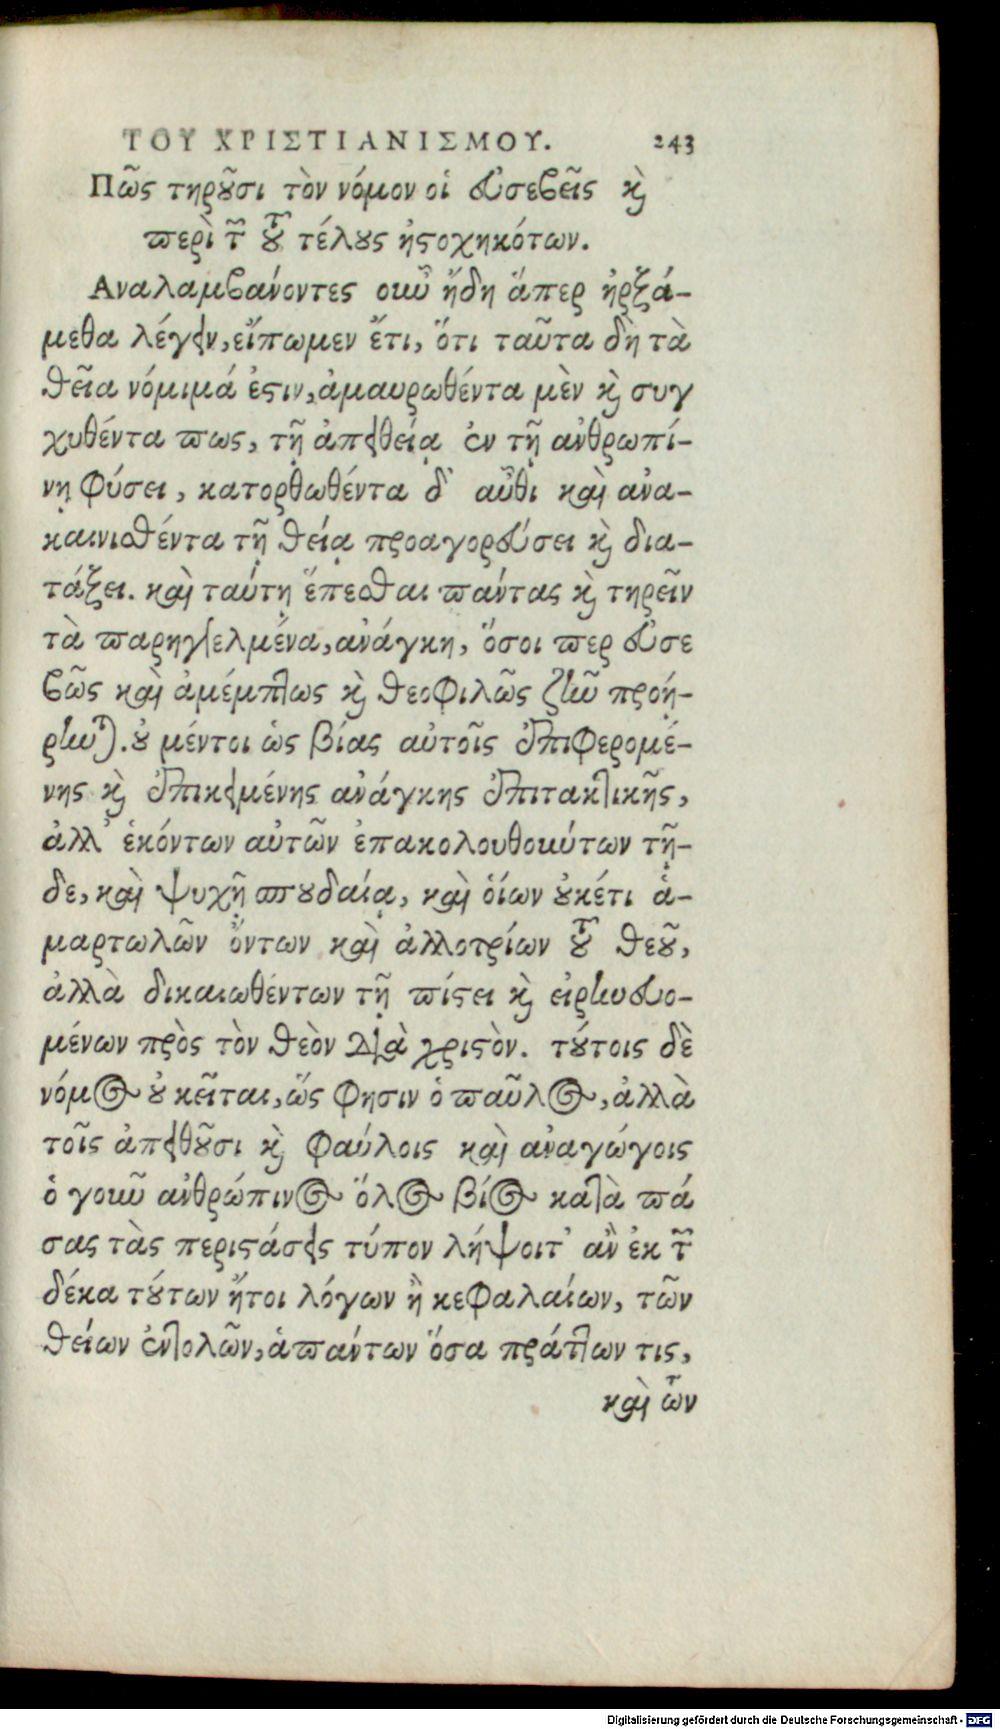 ΤΟΥ ΧΡΙΣΤΙΑΝΙΣΜΟΥ. 243
Πῶς τηροῦσι τὸν νόμον οἱ εὐσεβεῖς κὶ
περὶ τῶν τοῦ τέλους ἠστοχηκότων.
Αναλαμβάνοντες οὖν ἤδη ἅπερ ἠρξά-
μεθα λέγειν, εἴπωμεν ἔτι, ὅτι ταῦτα δὴ τὰ
θεῖα νόμιμά ἐστιν, ἀμαυρωθέντα μὲν κὶ συγ
χυθέντα πως, τῇ ἀπειθείᾳ ἐν τῇ ἀνθρωπί-
νῃ φύσει, κατορθωθέντα δ᾽ αὖθι καὶ ἀνα-
καινισθέντα τῇ θείᾳ προαγορεύσει κὶ δια-
τάξει. καὶ ταύτῃ ἕπεσθαι πάντας κὶ τηρεῖν
τὰ παρηγγελμένα, ἀνάγκη, ὅσοι περ εὐσε
βῶς καὶ ἀμέμπτως κὶ θεοφιλῶς ζῆν προῄ-
ρηνται. οὐ μέντοι ὡς βίας αὐτοῖς ἐπιφερομέ-
νης κὶ ἐπικειμένης ἀνάγκης ἐπιτακτικῆς,
ἀλλ᾽ ἑκόντων αὐτῶν ἐπακολουθούντων τῇ-
δε, καὶ ψυχῇ σπουδαίᾳ, καὶ οἵων οὐκέτι ἁ-
μαρτωλῶν ὄντων καὶ ἀλλοτρίων τοῦ θεοῦ,
ἀλλὰ δικαιωθέντων τῇ πίστει κὶ εἰρηνευο-
μένων πρὸς τὸν θεὸν διὰ χριστὸν. τούτοις δὲ
νόμος οὐ κεῖται, ὥς φησιν ὁ παῦλος, ἀλλὰ
τοῖς ἀπειθοῦσι κὶ φαύλοις καὶ ἀναγώγοις
ὁ γοῦν ἀνθρώπινος ὅλος βίος κατὰ πά
σας τὰς περιστάσεις τύπον λήψοιτ᾽ ἂν ἐκ τῶν
δέκα τούτων ἤτοι λόγων ἢ κεφαλαίων, τῶν
θείων ἐντολῶν, ἁπάντων ὅσα πράττων τις,
καὶ ὧν
Digitalisierung gefördert durch die Deutsche Forschungsgemeinschaft - DFG